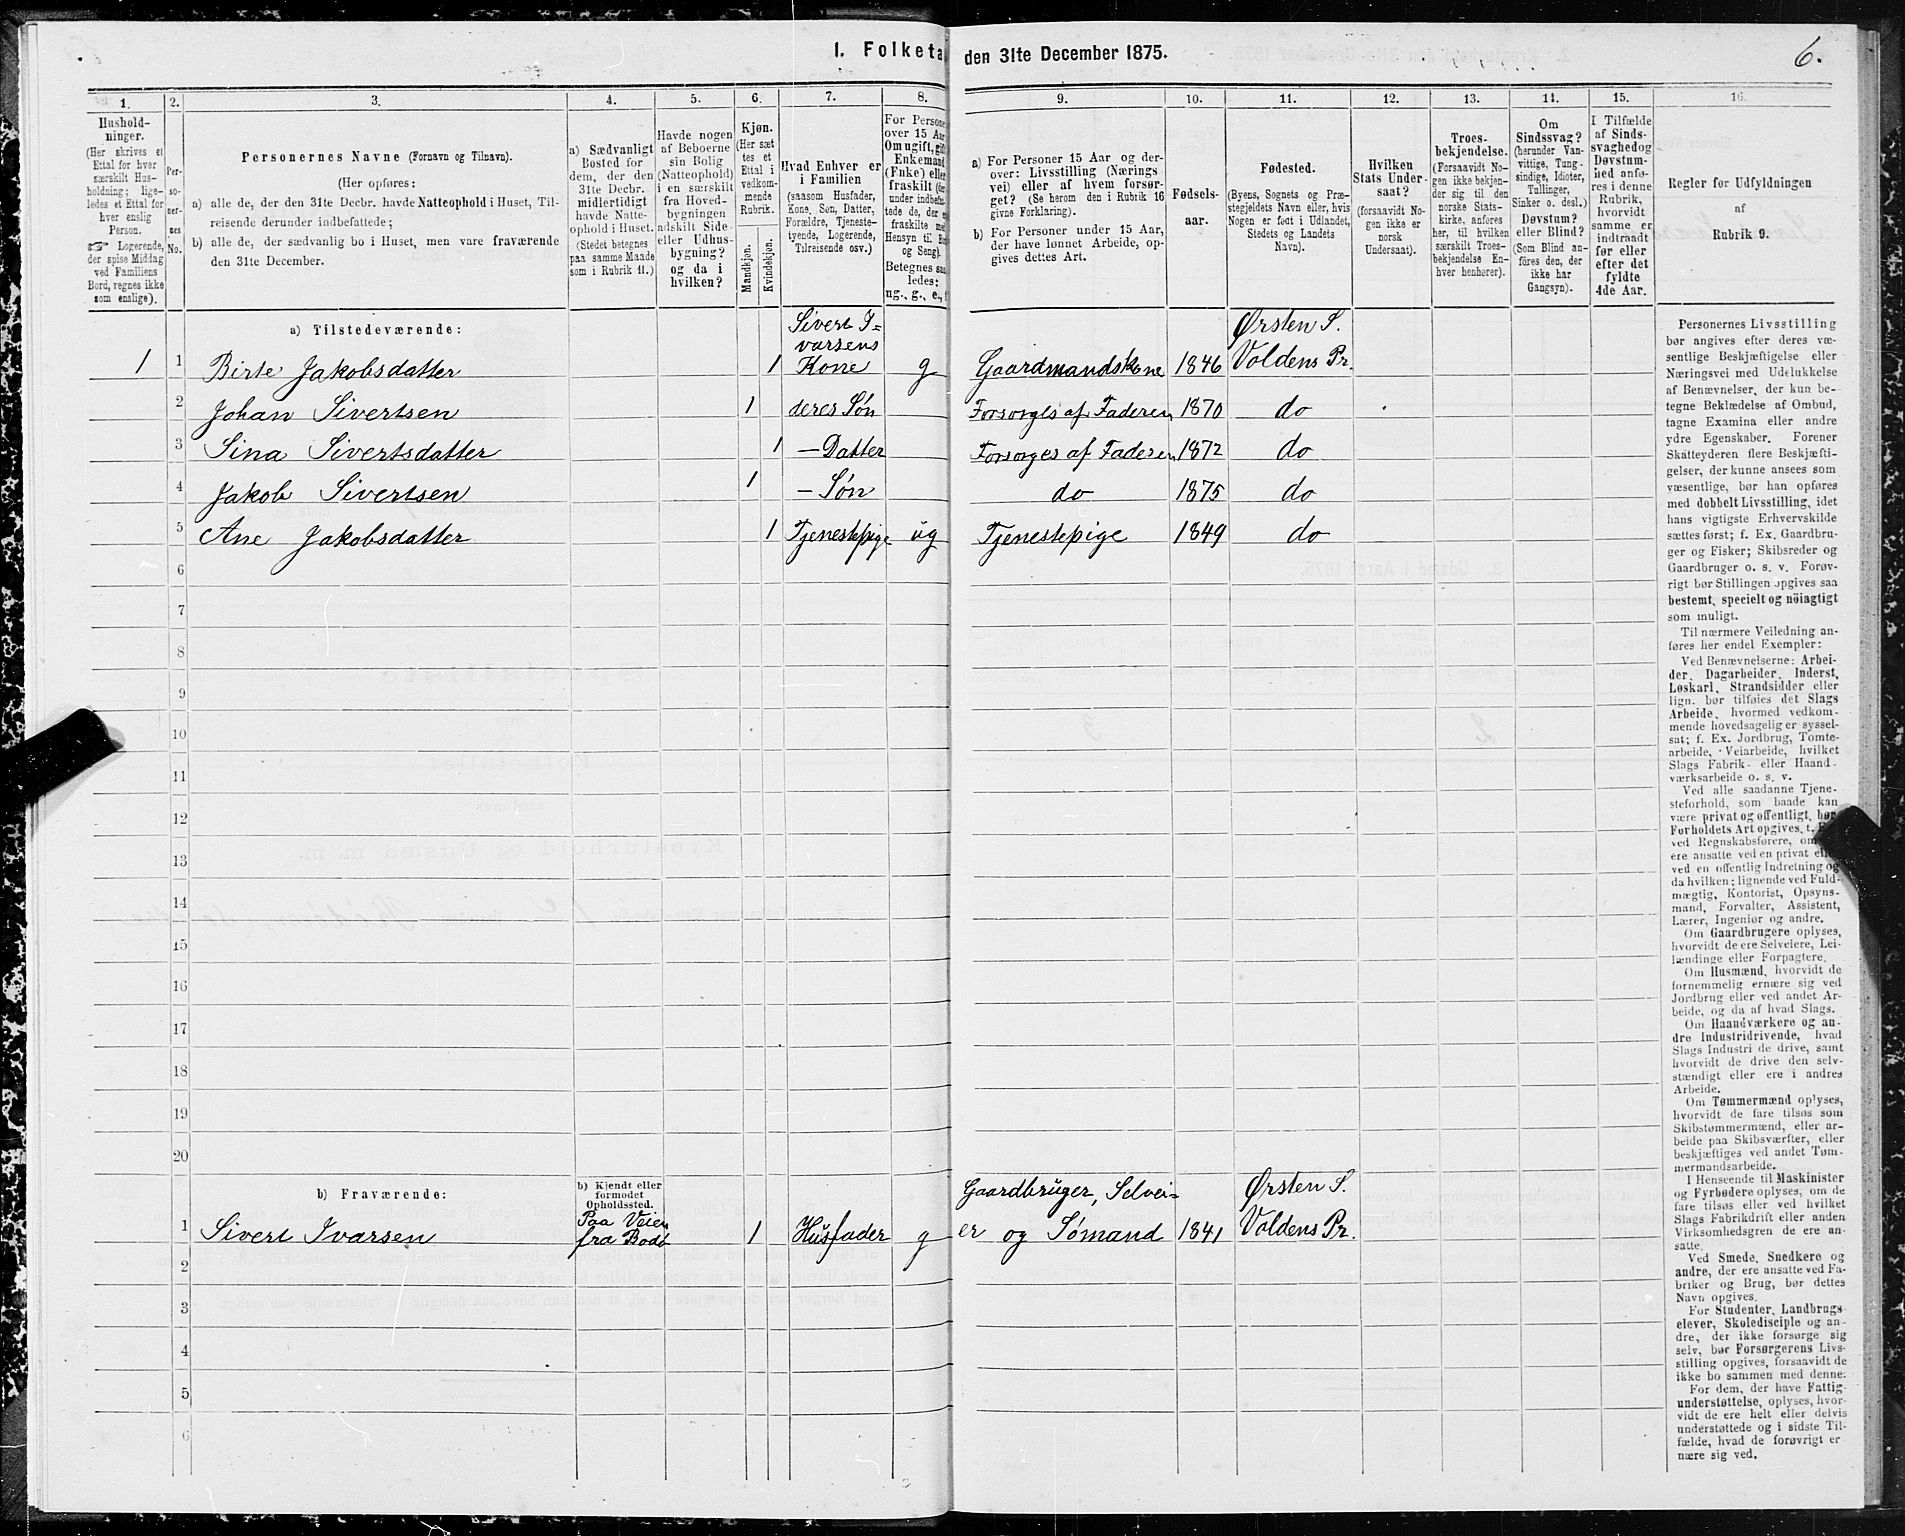 I. Folketa
den 31te December 1875.
6.
1.
Hushold-
ninger.
(Her skrives et
Ettal for hver
særskilt Hus-
holdning; lige-
ledes et Ettal for
hver enslig
Person.
☞ Logerende,
der spise Middag
ved Familiens
Bord, regnes ikke
som enslige).
2.
Per-
so-
ner-
nes
No.
3.
Personernes Navne (Fornavn og Tilnavn).
(Her opføres:
a) alle de, der den 31te Decbr. havde Natteophold i Huset, Til-
reisende derunder indbefattede;
b) alle de, der sædvanlig bo i Huset, men vare fraværende
den 31te December.
4.
a) Sædvanligt
Bosted for
dem, der den
31te Decbr.
midlertidigt
havde Natte-
ophold i Huset.
(Stedet betegnes
paa samme Maade
som i Rubrik 11.)
5.
Havde nogen
af Beboerne
sin Bolig
(Natteophold)
i en særskilt
fra Hoved-
bygningen
adskilt Side-
eller Udhus-
bygning?
og da i
hvilken?
6.
Kjøn.
(Her sæt-
tes et
Ettal i
vedkom-
mende
Rubrik.
Mandkjøn.
Kvindekjøn.
7.
Hvad Enhver er
i Familien
(saasom Husfader,
Kone, Søn, Datter,
Forældre, Tjeneste-
tyende, Logerende,
Tilreisende osv.)
8.
For Persone
over 15 Aar
Om ugift, gift
Enkemand
(Enke) eller
fraskilt (der
under indbefat-
tede de, der e
fraskilte med
Hensyn til B
og Seng).
Betegnes saa
ledes:
ug., g., e.,
9.
a) For Personer 15 Aar og der-
over: Livsstilling (Nærings
vei) eller af hvem forsør-
get? (Se herom den i Rubrik 16
givne Forklaring).
b) For Personer under 15 Aar,
der have lønnet Arbeide, op-
gives dettes Art.
10.
Fødsels-
aar.
11.
Fødested.
(Byens, Sognets og Præ-
stegjeldets Navn eller, hvis
Nogen er født i Udlandet,
Stedets og Landets
Navn).
12.
Hvilken
Stats Under-
saat?
(forsaavidt No-
gen ikke er
norsk
Undersaat).
13.
Troes-
bekjendelse.
(Forsaavidt No-
gen ikke bekjen-
der sig til den
norske Stats-
kirke, anføres
her, til hvilken
særskilt Troes-
bekjendelse En-
hver henhører).
14.
Om
Sindssvag?
(herunder Van-
vittige, Tung-
sindige, Idioter,
Tullinger,
Sinker o. desl.)
Døvstum?
eller Blind?
(Som Blind an-
føres den, der
ikke har
Gangsyn).
15.
I Tilfælde
af Sinds-
svaghed og
Døvstum-
hed anfø-
res i denne
Rubrik,
hvorvidt
samme er
indtraadt
før eller
efter det
fyldte
4de Aar.
16.
Regler for Udfyldningen
af
Rubrik 9.
a) Tilstedeværende:
Sivert I=
varsens
Ørsten S.
1 1 Birte Jakobsdatter 1 Kone g Gaardmandskone 1846 Voldens Pr.
2 Johan Sivertsen 1 deres Søn Forsorges af Faderen 1870 do
3 Sina Sivertsdatter 1 — Datter Forsorges af Faderen 1872 do
4 Jakob Sivertsen 1 — Søn do 1875 do
5 Ane Jakobsdatter 1 Tjenestepige ug Tjenestepige 1849 do
6
7
8
9
10
11
12
13
14
15
16
17
18
19
20
b) Fraværende:
b) Kjendt eller
formodet
Opholdssted.
Gaardbruger, Selvei=
Ørsten S.
Paa Veien
1 Sivert Ivarsen fra Bodø 1 Husfader g er og Sømand 1841 Voldens Pr.
2
3
4
5
6
Personernes Livsstilling
bør angives efter deres væ-
sentlige Beskjæftigelse eller
Næringsvei med Udelukkelse
af Benævnelser, der kun be-
tegne Beklædelse af Ombud,
tagne Examina eller andre
ydre Egenskaber. Forener
Skatteyderen flere Beskjæfti-
gelser, der kunne ansees som
væsentlige, bør han opføres
med dobbelt Livsstilling, idet
hans vigtigste Erhvervskilde
sættes først; f. Ex. Gaardbru-
ger og Fisker; Skibsreder og
Gaardbruger o. s. v. Forøv-
rigt bør Stillingen opgives saa
bestemt, specielt og nöiagtigt
som muligt.
Til nærmere Veiledning an-
føres her endel Exempler:
Ved Benævnelserne: Arbei-
der, Dagarbeider, Inderst,
Løskarl, Strandsidder eller
lign. bør tilføies det Slags
Arbeide, hvormed vedkom-
mende hovedsagelig er syssel-
sat; f. Ex. Jordbrug, Tomte-
arbeide, Veiarbeide, hvilket
Slags Fabrik- eller Haand-
værksarbeide o. s. v.
Ved alle saadanne Tjene-
steforhold, som baade kan
være privat og offentligt, bør
Forholdets Art opgives, t. E
ved Regnskabsførere, om
ere ansatte ved en privat ell
ved en offentlig Indretning og
da hvilken; lignende ved Fuld-
mægtig, Kontorist, Opsyns-
mand, Forvalter, Assistent,
Lærer, Ingeniør og andre.
Om Gaardbrugere oplyses,
hvorvidt de ere Selveiere, Lei-
lændinge eller Forpagtere.
Om Husmænd, hvorvidt de
fornemmelig ernære sig ved
Jordbrug eller ved andet Ar-
beide, og da af hvad Slags.
Om Haandværkere og an-
dre Industridrivende, hvad
Slags Industri de drive, samt
hvorvidt de drive den selv-
stændigt eller ere i andres
Arbeide.
Om Tømmermænd oplyses,
hvorvidt de fare tilsøs som
Skibstømmermænd, eller ar-
beide paa Skibsværfter, eller
beskjæftiges ved andet Tøm-
mermandsarbeide.
I Henseende til Maskinister
og Fyrbødere oplyses, om de
fare tilsøs eller ved hvilket
Slags Fabrikdrift eller anden
Virksomhedsgren de ere an-
satte.
Ved Smede, Snedkere og
andre, der ere ansatte ved Fa-
briker og Brug, bør dettes
Navn opgives.
For Studenter, Landbrugs-
elever, Skoledisciple og an-
dre, der ikke forsørge sig
selv, bør Forsørgerens Livs-
stilling opgives, forsaavidt de
ikke bo sammen med denne.
For dem, der have Fattig-
understøttelse, oplyses, hvor-
vidt de ere helt eller delvis
understøttede og i sidste Til-
fælde, hvad de forøvrigt er-
nære sig ved.